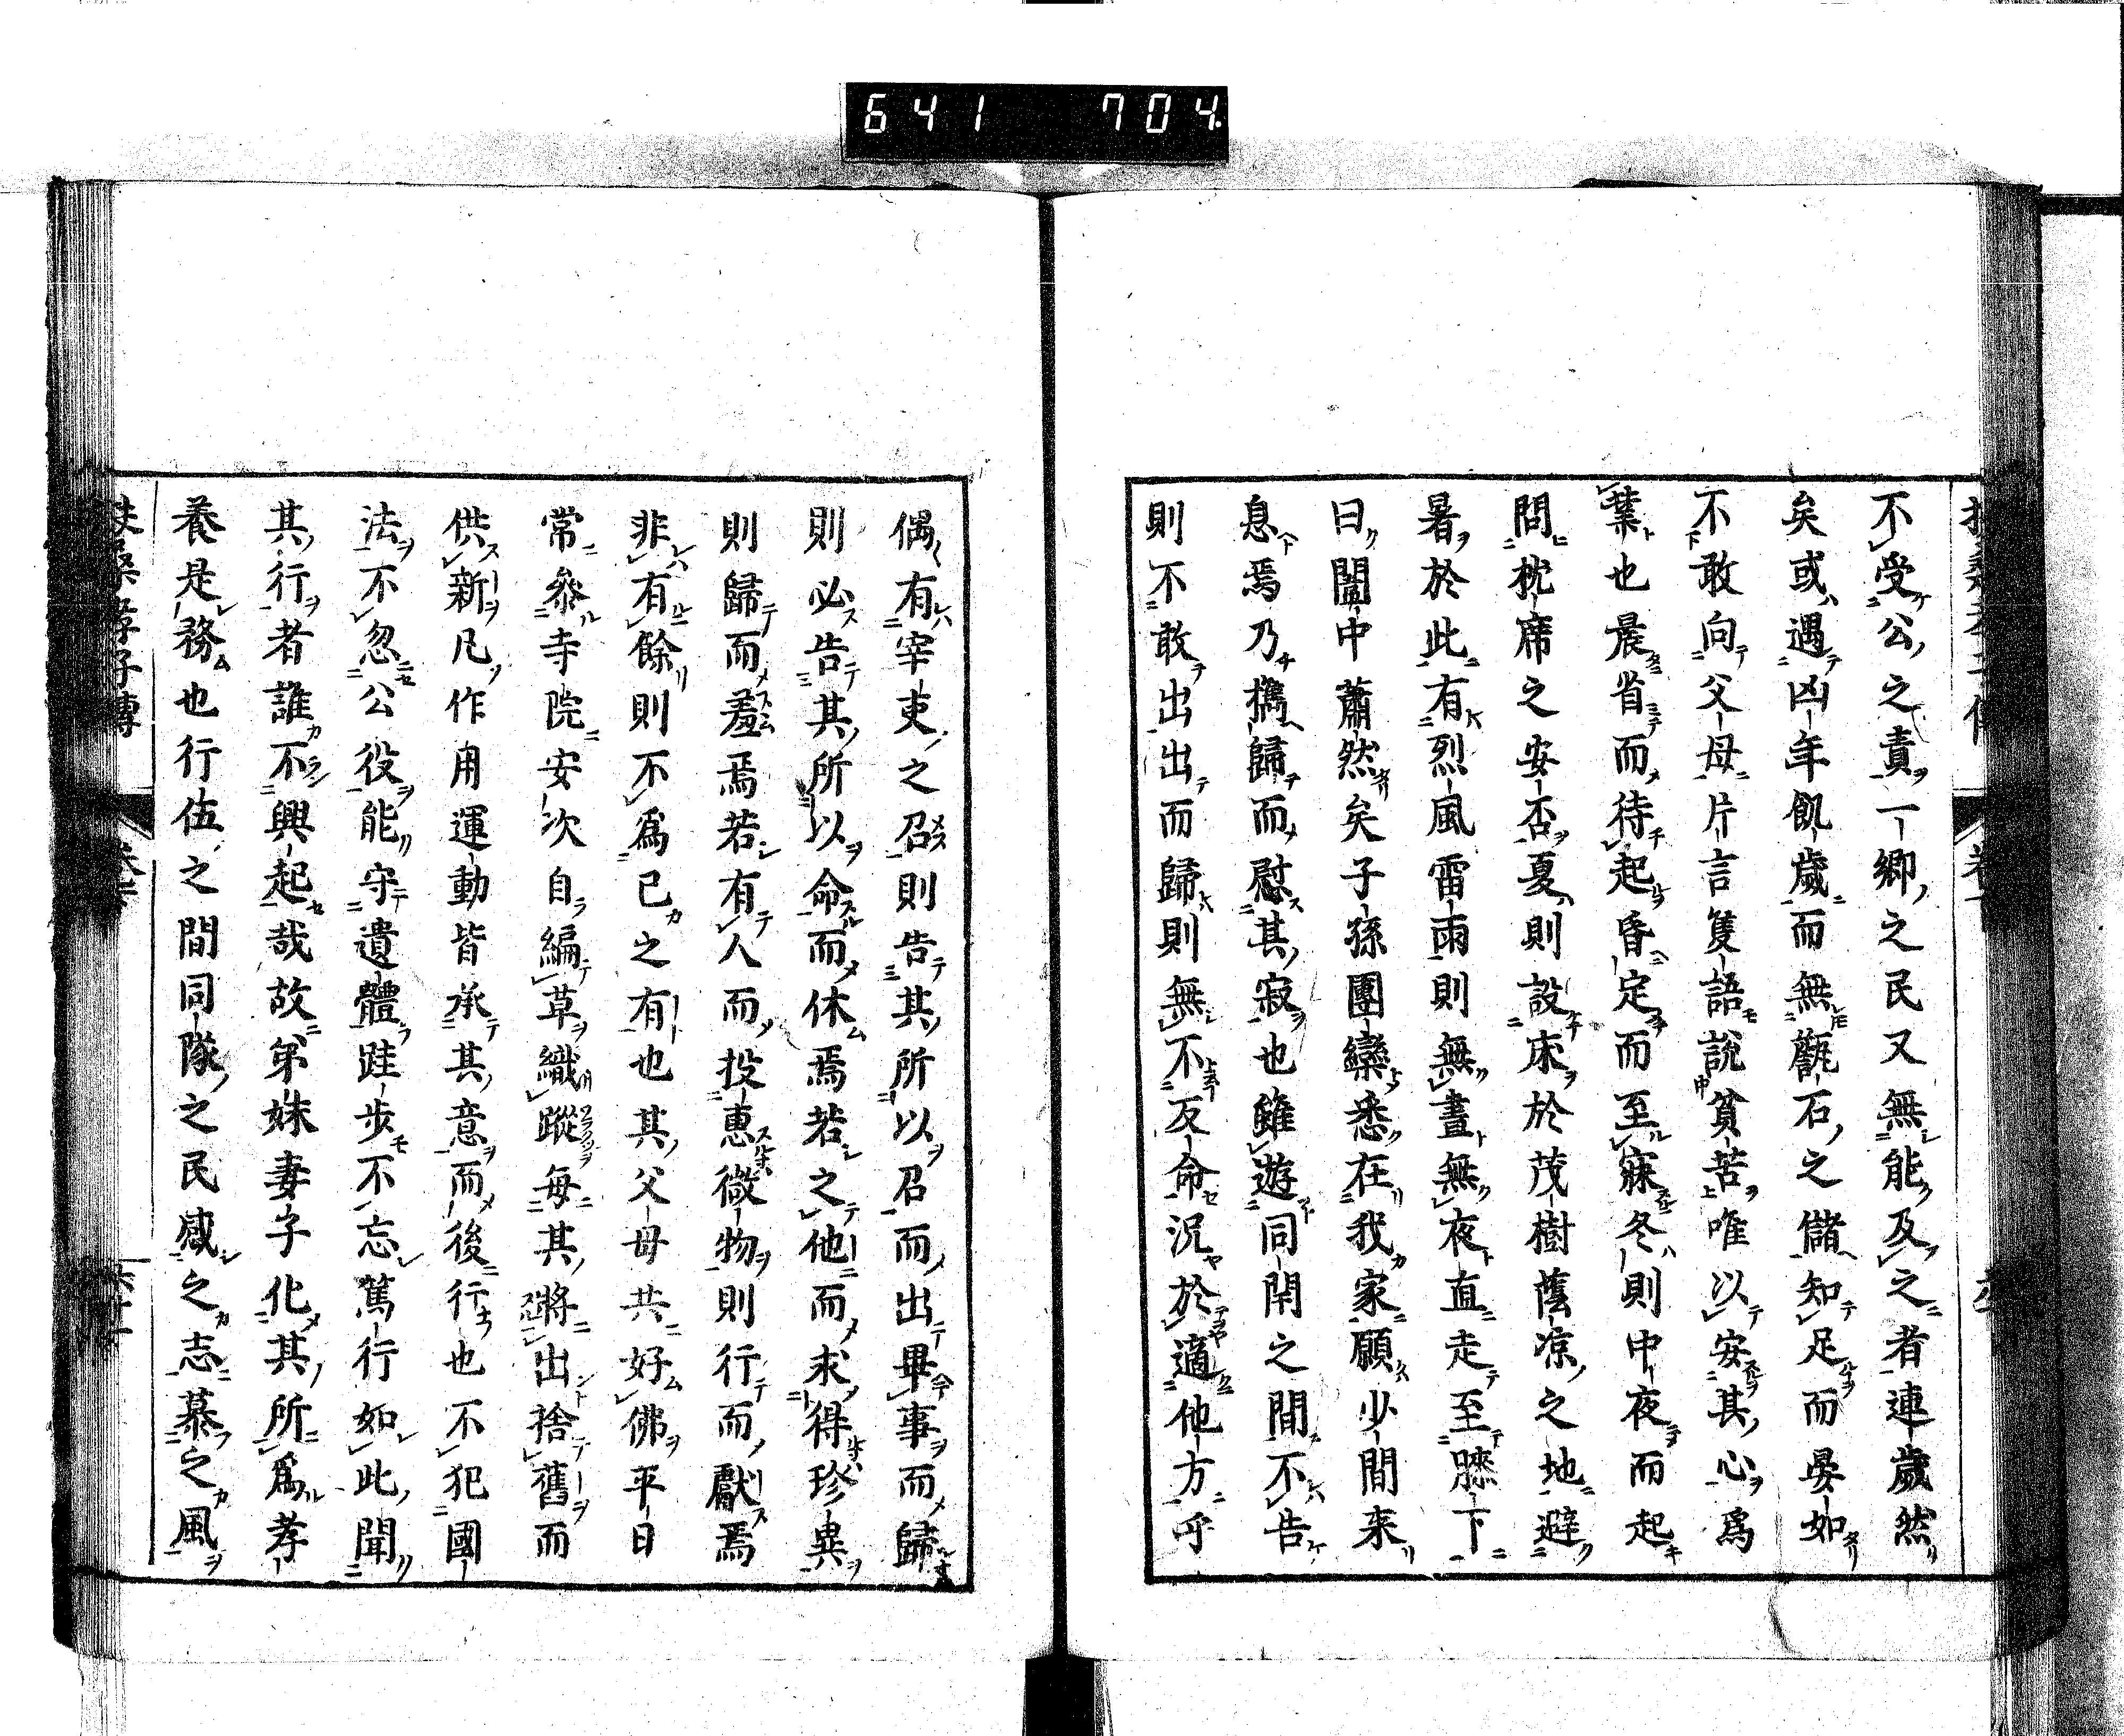 641 704
不受公之責一鄉之民又無能及之者連歲然
矣或遇凶年飢歲而無甔石之儲知足而晏如
不敢向父母片言隻語說貧苦唯以安其心爲
葉也晨省而待起昏定而至寐冬則中夜而起
問枕席之安否夏則設床於茂樹蔭凉之地避
暑於此有烈風雷雨則無晝無夜直走至膝下
曰闔中蕭然矣子孫團欒悉在我家願少間来
息焉乃携歸而慰其寂也雖遊同閈之間不告
則不敢出出而歸則無不反命況於適他方乎
偶有宰吏之召則告其所以召而出畢事而歸
則必告其所以命而休焉若之他而求得珍異
則歸而羞焉若有人而投惠微物則行而獻焉
非有餘則不爲已之有也其父母共好佛平日
常參寺院安次自編草織蹤每其將出捨舊而
供新凡作用運動皆承其意而後行也不犯國
法不忽公役能守遺體跬步不忘篤行如此聞
其行者誰不興起哉故弟妹妻子化其所爲孝
養是務也行伍之間同隊之民感之志慕之風
扶桑孝子傳